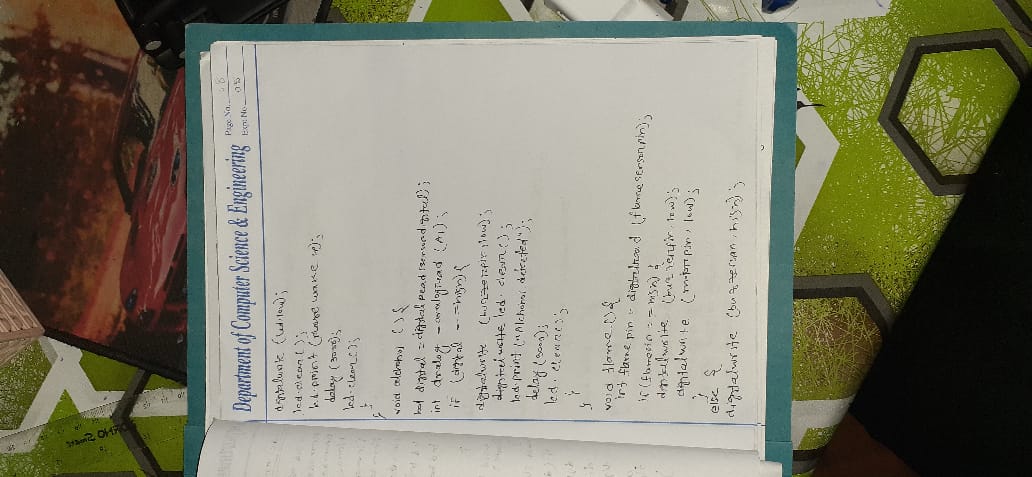 Department of Computer Science & Engineering
Page No. 08
Expt No. 05
digitalwrite (led, low);
lcd.clear();
lcd.print (
delay (500);
lcd.clear();
}
void alcohol () {
int digital = digitalread
int analog = analogread (A1);
if (digital == high) {
digitalwrite (buzzerpin, low);
digital write lcd.clear();
lcd.print ("Alchohol detected");
delay (500);
lcd.clear();
}
}
void flame () {
int flamepin = digitalread (flamesensorpin);
if (flamepin == high) {
digitalwrite (buzzerpin, low);
digitalwrite (motorpin, low);
}
else {
digitalwrite (buzzerpin, high);